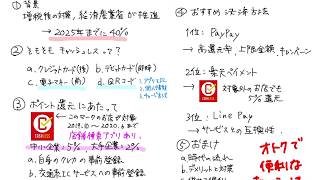 ① 背景
増税後の対策，経済産業省が推進
→ 2025年までに40%
② そもそもキャッシュレスって？
a. クレジットカード(後)
b. デビットカード(即時)
c. 電子マネー(前)
d. QRコード
③ ポイント還元にあたって
CASHLESS
このマークのお店が対象
2019.10〜2020.6まで
店舗検索アプリあり
中小企業→5% 大手企業→2%
a. 自身のクレカの事前登録
b. 交通系ICサービスへの事前登録
④ おすすめ決済方法
1位：PayPay
→高還元率，上限金額，キャンペーン
2位：楽天ペイメント
CASHLESS
対象外のお店でも
5%還元
3位：Line Pay
→サービスとの互換性
⑤ おまけ
a. 時代の流れ
b. デメリットと対策
オトクで
便利な